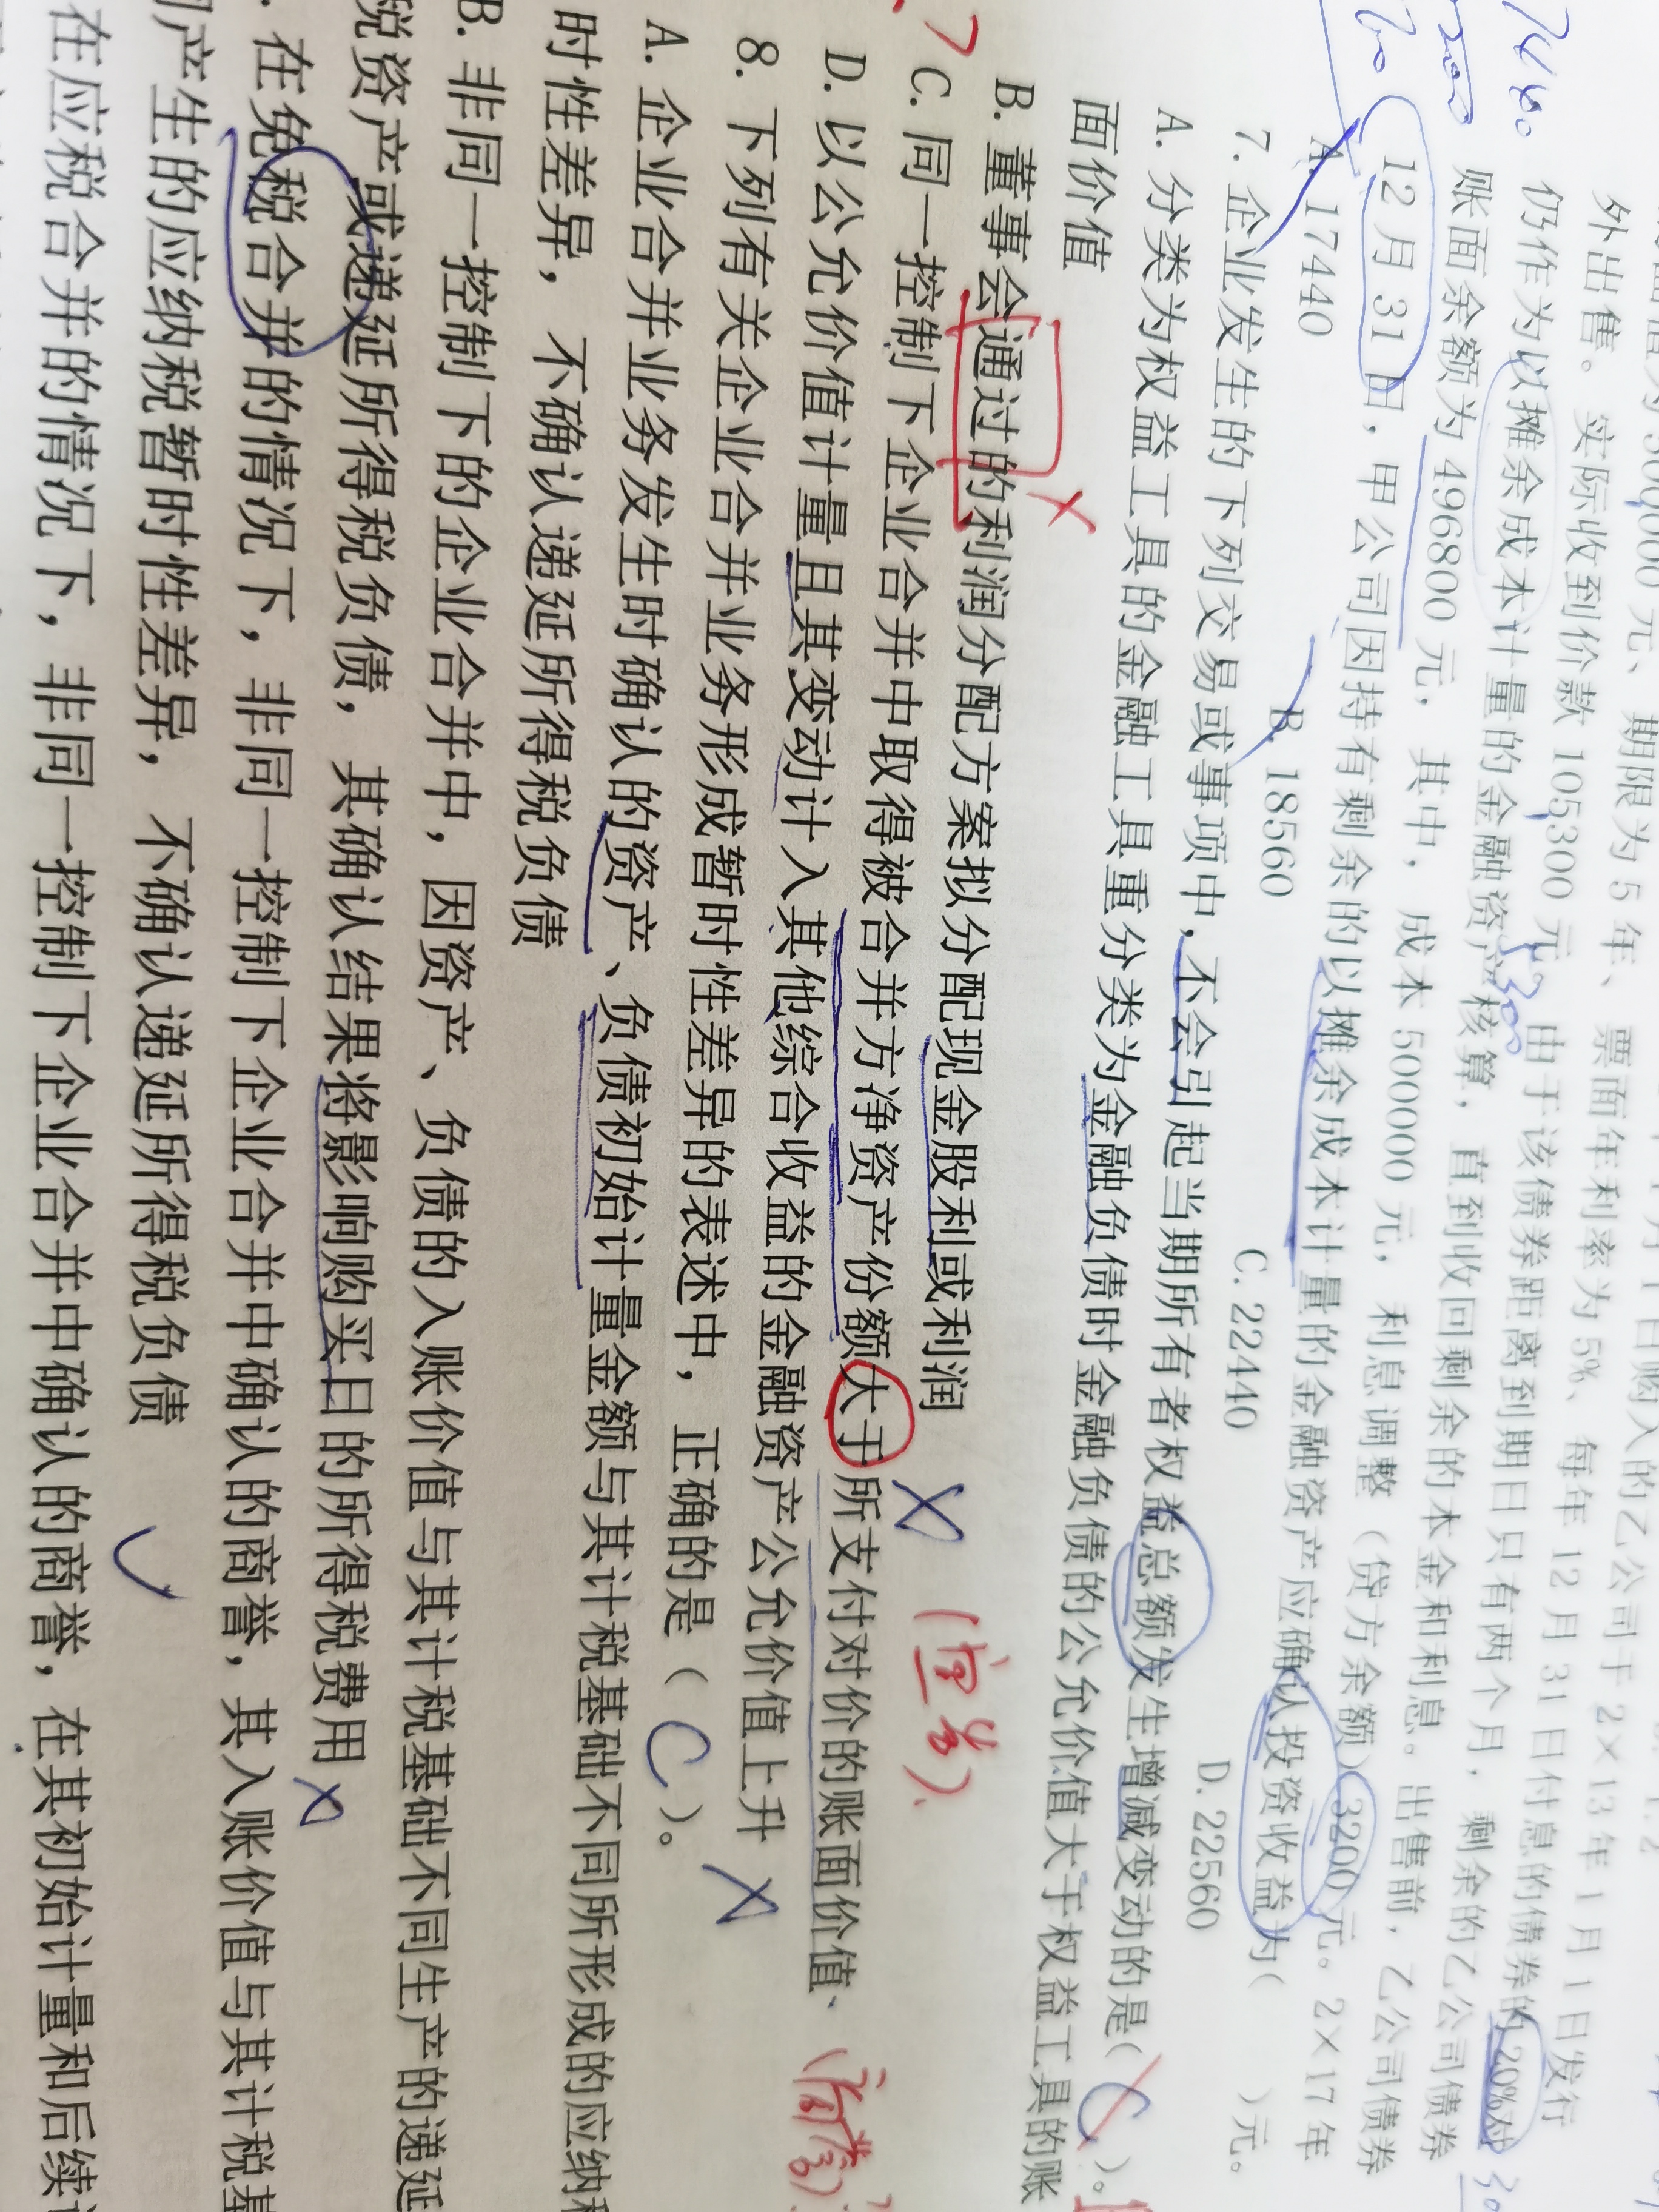 外出售。实际收到价款 105300 元。由于该债券距离到期日只有两个月，剩余的乙公司债券
仍作为以摊余成本计量的金融资产核算，直到收回剩余的本金和利息。出售前，乙公司债券
账面余额为 496800 元，其中，成本 500000 元，利息调整（贷方余额）3200 元。2×17 年
12 月 31 日，甲公司因持有剩余的以摊余成本计量的金融资产应确认投资收益为（ ）元。
A. 17440 B. 18560 C. 22440 D. 22560
7. 企业发生的下列交易或事项中，不会引起当期所有者权益总额发生增减变动的是（C）。
A. 分类为权益工具的金融工具重分类为金融负债时金融负债的公允价值大于权益工具的账
面价值
B. 董事会通过的利润分配方案拟分配现金股利或利润
C. 同一控制下企业合并中取得被合并方净资产份额大于所支付对价的账面价值
D. 以公允价值计量且其变动计入其他综合收益的金融资产公允价值上升
8. 下列有关企业合并业务形成暂时性差异的表述中，正确的是（C）。
A. 企业合并业务发生时确认的资产、负债初始计量金额与其计税基础不同所形成的应纳税
时性差异，不确认递延所得税负债
B. 非同一控制下的企业合并中，因资产、负债的入账价值与其计税基础不同生产的递延
税资产或递延所得税负债，其确认结果将影响购买日的所得税费用
在免税合并的情况下，非同一控制下企业合并中确认的商誉，其入账价值与其计税基
产生的应纳税暂时性差异，不确认递延所得税负债
在应税合并的情况下，非同一控制下企业合并中确认的商誉，在其初始计量和后续